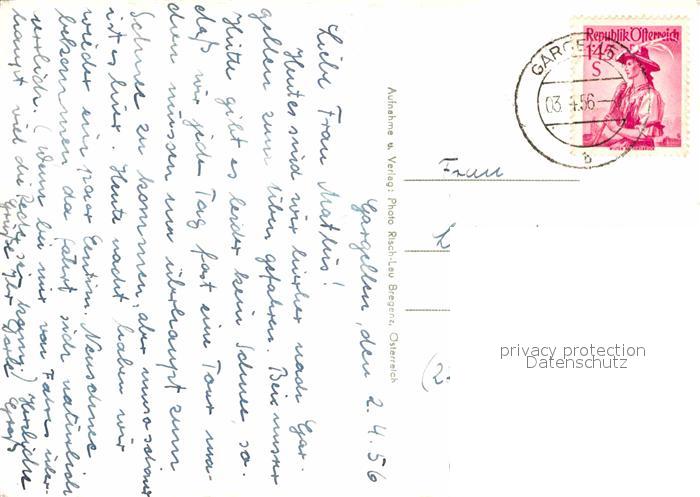 Gargellen, den 2.4.56
Liebe Frau Mathis!
Heute sind wir hierher nach Gar-
gellen zum Üben gefahren. Bei unserer
Hütte gibt es leider kein Schnee, so-
daß wir jeden Tag fast eine Tour ma-
chen müssen um überhaupt zum
Schnee zu kommen, aber wunderschön
ist es hier. Heute nacht haben wir
wieder ein paar Zentim. Neuschnee
bekommen da fährt sich natürlich
herrlich. (Wenn bei mir von Fahren über-
haupt viel die Rede sein kann.) Herzliche
Grüße Ihre
Aufnahme u. Verlag: Photo Risch-Lau Bregenz, Österreich
Republik Österreich
1.45
S
GARGELLEN
03.4.56
b
Frau
(2
privacy protection
Datenschutz